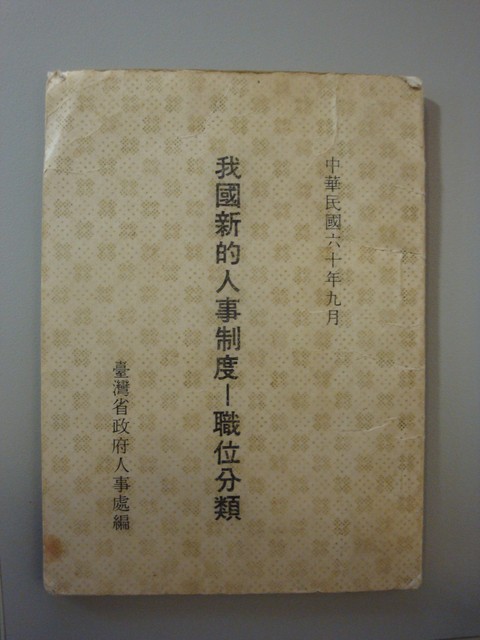 中華民國六十年九月
我國新的人事制度—職位分類
臺灣省政府人事處編